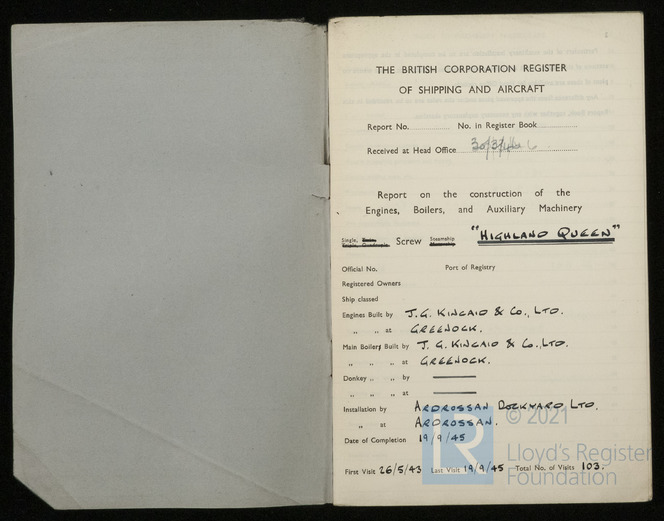 THE BRITISH CORPORATION REGISTER
OF SHIPPING AND AIRCRAFT
Report No. No. in Register Book
Received at Head Office 30/3/46
Report on the construction of the
Engines, Boilers, and Auxiliary Machinery
Single, Screw Steamship "HIGHLAND QUEEN"
Official No. Port of Registry
Registered Owners
Ship classed
Engines Built by J. G. KINCAID & Co., LTD.
„ „ at GREENOCK.
Main Boilers Built by J. G. KINCAID & Co., LTD.
„ „ „ at GREENOCK.
Donkey „ „ by
„ „ „ at
Installation by ARDROSSAN DOCKYARD LTD.
„ at ARDROSSAN.
Date of Completion 19/9/45
First Visit 26/5/43 Last Visit 19/9/45 Total No. of Visits 103.
© 2021
LR
Lloyd's Register
Foundation